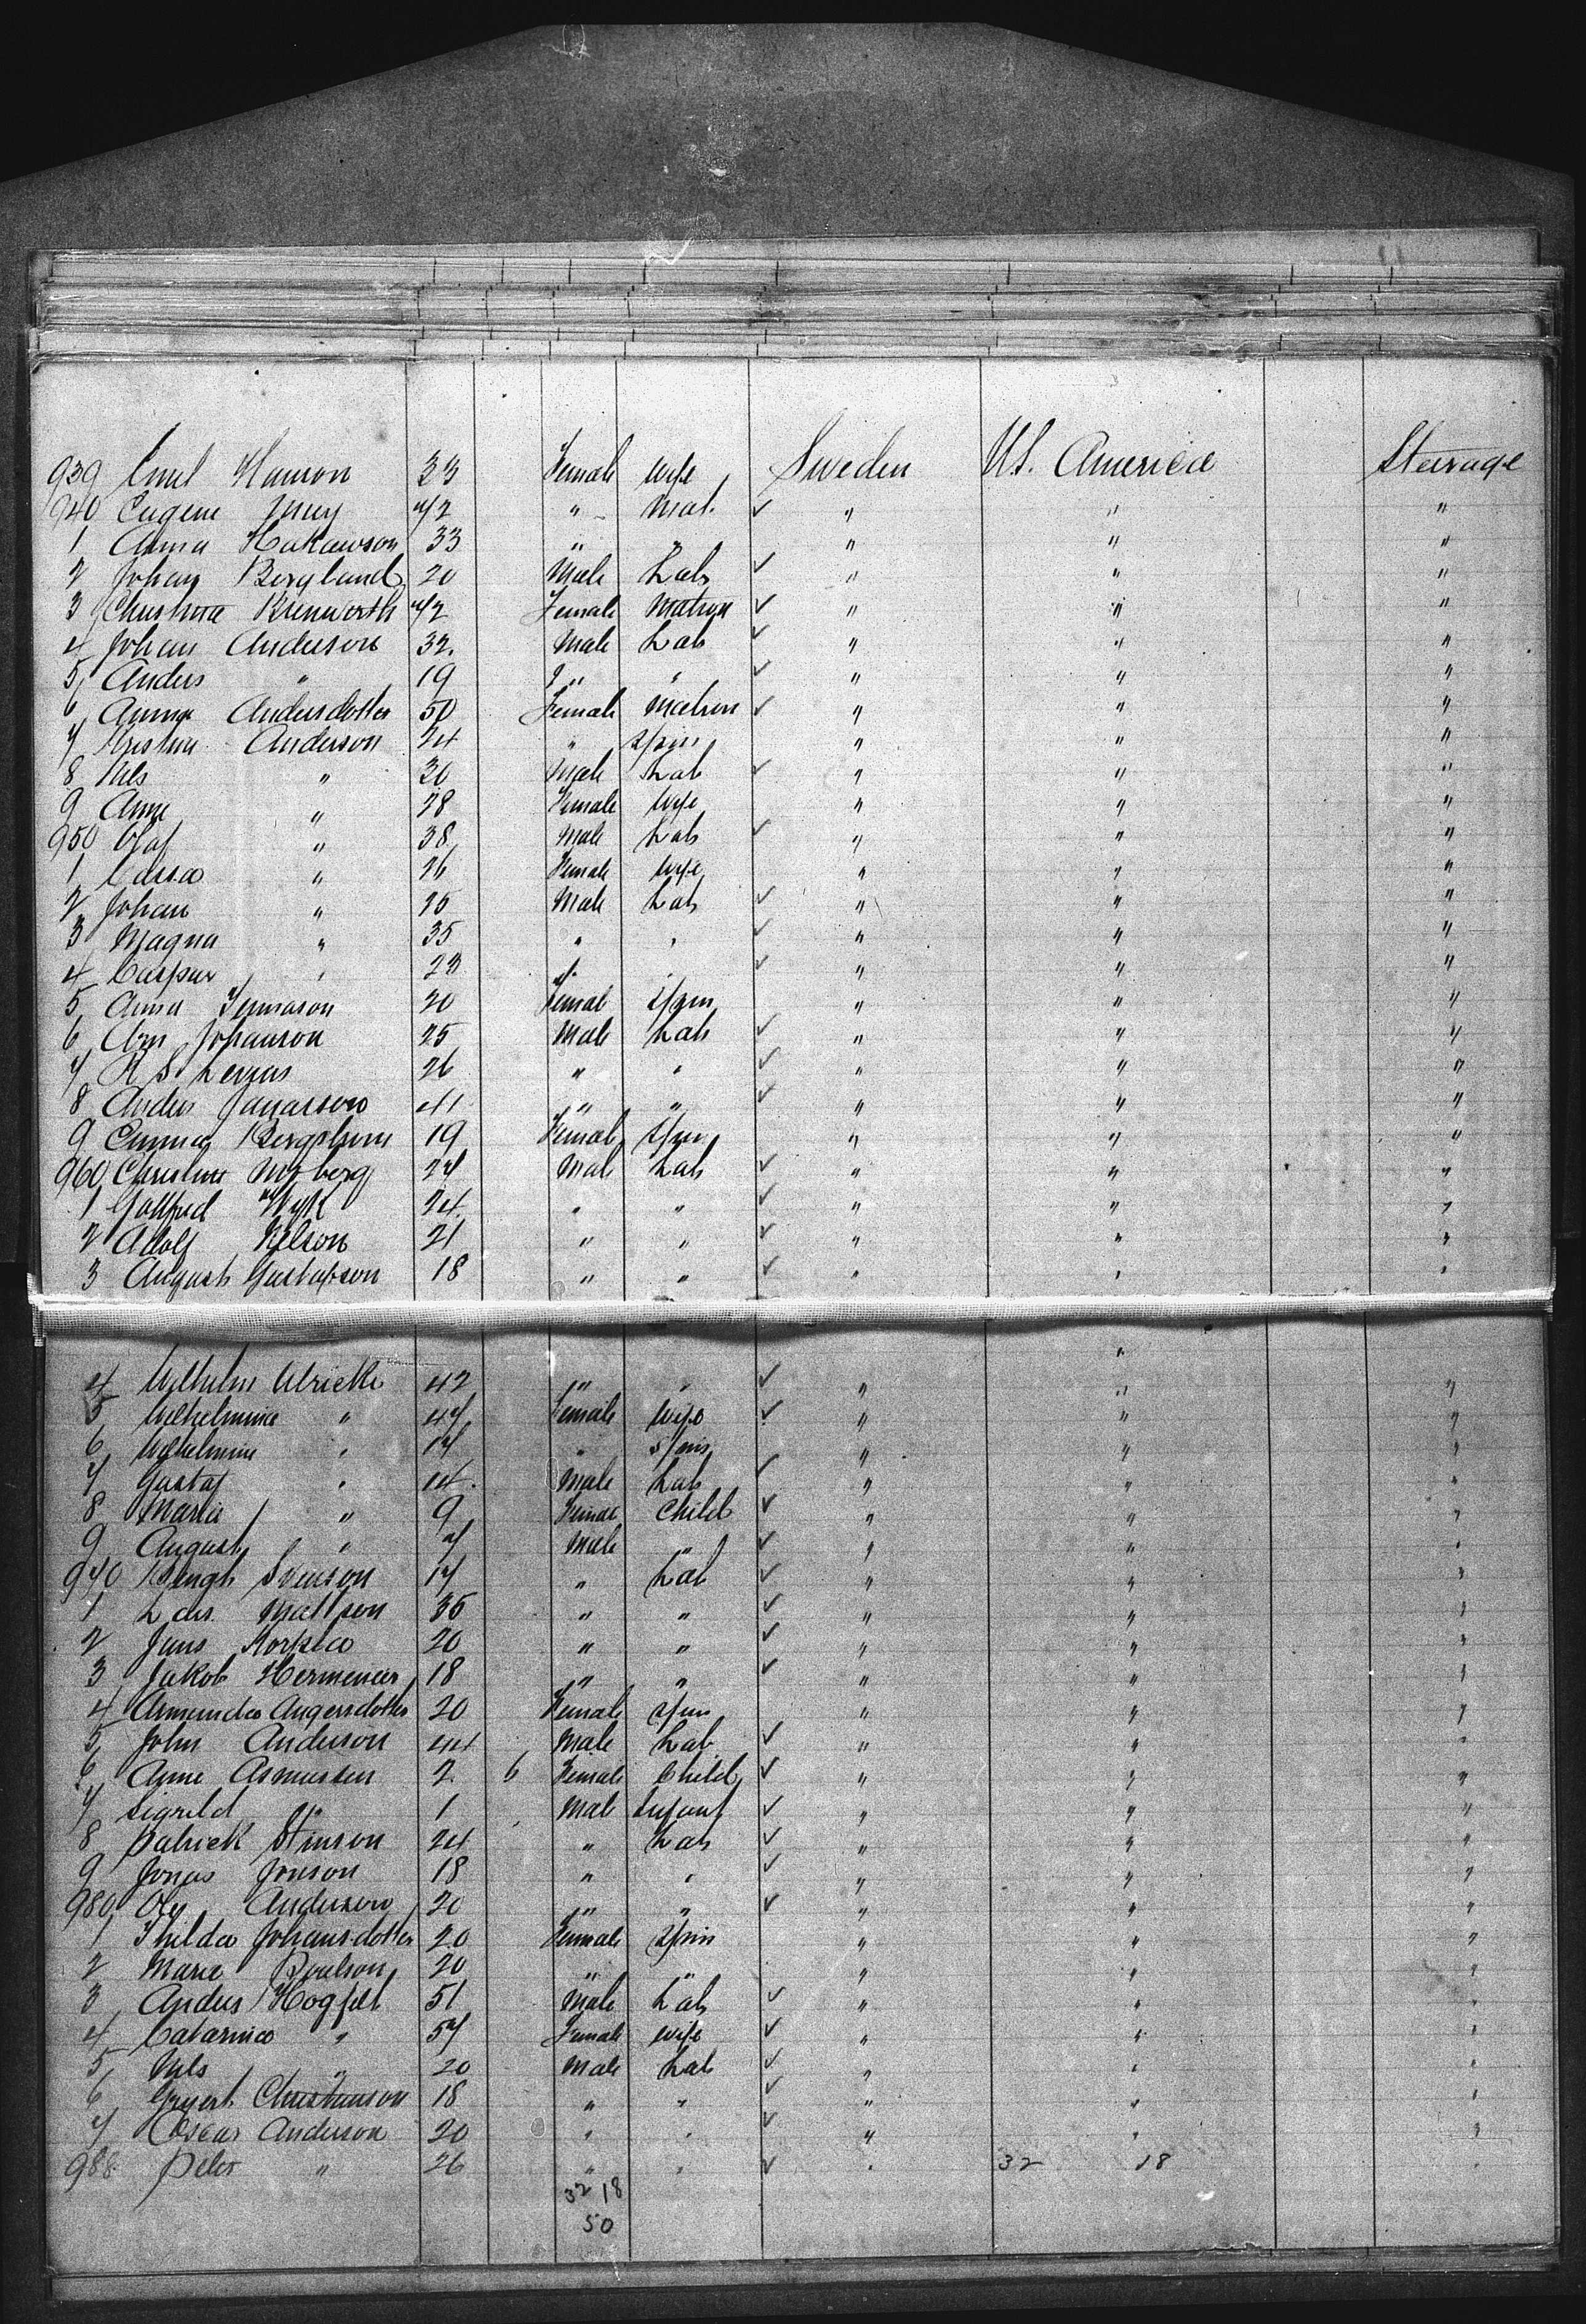 939 Emil Hanson 33 Female Wife Sweden US. America Steerage
940 Eugene 42 " Mat. ✓ " " "
1 Anna Hakanson 33 " " " " "
2 Johan Bergland 20 Male Lab ✓ " " "
3 Christina 42 Female Matron ✓ " " "
4 Johan Anderson 32. Male Lab ✓ " " "
5 Anders " 19 " " ✓ " " "
6 Anna Andersdotter 50 Female Matron ✓ " " "
7 Kristina Anderson 24 " Spin " " "
8 Nils " 30 Male Lab ✓ " " "
9 Anna " 28 Female Wife " " "
950 Olaf " 38 Male Lab ✓ " " "
1 " 26 Female Wife " " "
2 Johan " 25 Male Lab ✓ " " "
3 Magna " 35 " " ✓ " " "
4 Caspar " 23 " " ✓ " " "
5 Anna 20 Female Spin " " "
6 Johanson 25 Male Lab ✓ " " "
7 26 " " ✓ " " "
8 Anders 41 " " ✓ " " "
9 Emma Bergstrom 19 Female Spin " " "
960 Christine Nyberg 27 Male Lab ✓ " " "
1 Gottfred 24. " " ✓ " " "
2 Adolf Nelson 21 " " ✓ " " "
3 August Gustafson 18 " " ✓ " " "
"
4 Wilhelm Ulricke 42 " " ✓ " " "
5 Wilhelmina " 47 Female Wife ✓ " " "
6 Wilhelmina " 17 " Spin " " "
7 Gustaf " 14. Male Lab ✓ " " "
8 Maria " 9 Female Child ✓ " " "
9 August " 7 Male " ✓ " " "
970 Bengt Svenson 17 " Lab ✓ " " "
1 Lars Mattson 35 " " ✓ " " "
2 Jans 20 " " ✓ " " "
3 Jakob 18 " " ✓ " " "
4 20 Female Spin " " "
5 John Anderson 44 Male Lab ✓ " " "
6 Anne Asmussen 2. 6 Female Child ✓ " " "
7 Sigrild " 1 Male Infant ✓ " " "
8 Patrick Stinson 24 " Lab ✓ " " "
9 Jonas Jonson 18 " " ✓ " " "
980 Anderson 20 " " ✓ " " "
1 Thilda Johansdotter 20 Female Spin " " "
2 Marie Poulson 20 " " " " "
3 Anders Hogfelt 51 Male Lab ✓ " " "
4 Catarina " 57 Female Wife ✓ " " "
5 Nils " 20 Male Lab ✓ " " "
6 Christianson 18 " " ✓ " " "
7 Oscar Anderson 20 " " ✓ " " "
988 Peter " 26 " " ✓ " 32 18 "
32 18
50